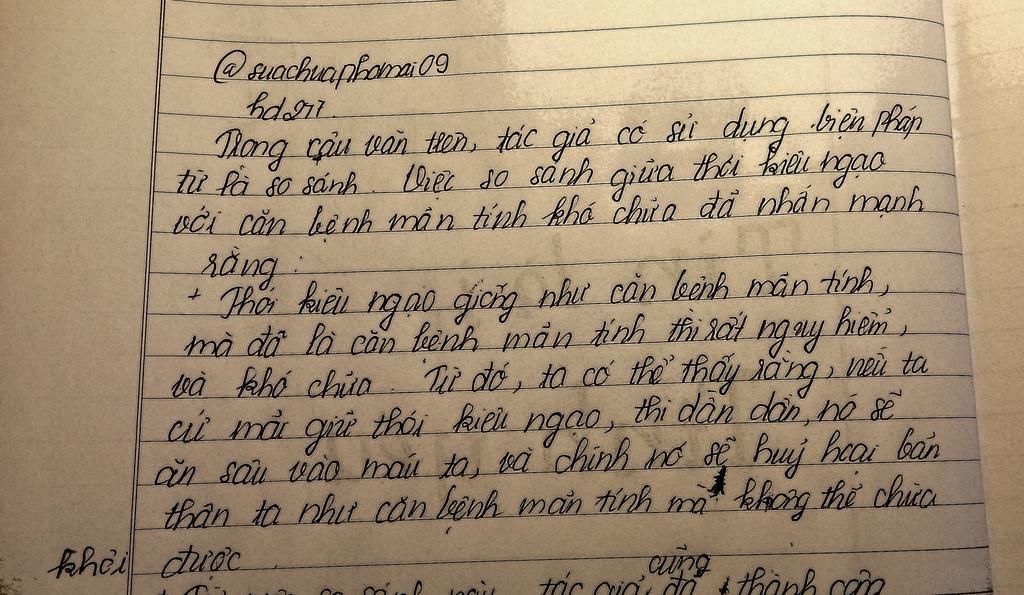 @suachuaphomai09
hd277.
Trong câu văn trên, tác giả có sử dụng biện pháp
từ là so sánh. Việc so sánh giữa thói kiêu ngạo
với căn bệnh mãn tính khó chữa đã nhấn mạnh
rằng:
+ Thói kiêu ngạo giống như căn bệnh mãn tính,
mà đã là căn bệnh mãn tính thì rất nguy hiểm,
và khó chữa. Từ đó, ta có thể thấy rằng, nếu ta
cứ mải giữ thói kiêu ngạo, thì dần dần, nó sẽ
ăn sâu vào máu ta, và chính nó sẽ huỷ hoại bản
thân ta như căn bệnh mãn tính mà không thể chữa
khỏi được.
cũng
so sánh này tác giả đã thành công